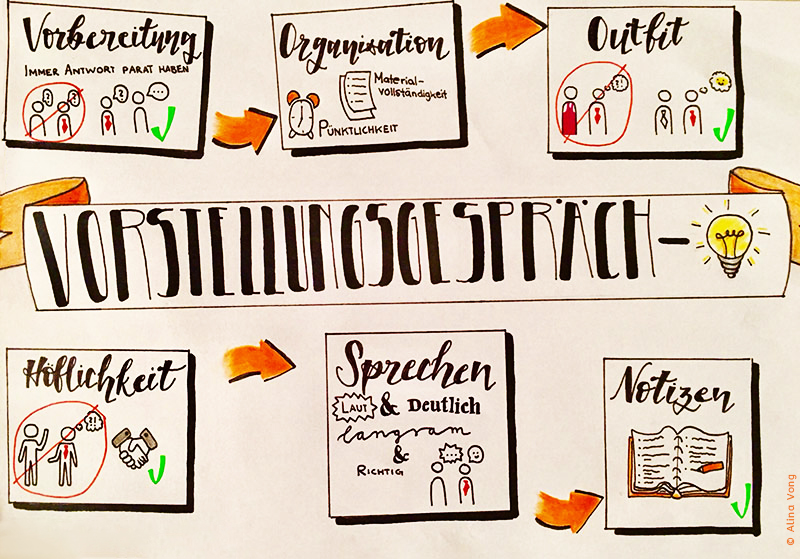 Vorbereitung
IMMER ANTWORT PARAT HABEN
?
?
?
...
Organisation
Material-
vollständigkeit
PÜNKTLICHKEIT
Outfit
VORSTELLUNGSGESPRÄCH-
Höflichkeit
Sprechen
LAUT & Deutlich
langsam
&
RICHTIG
Notizen
© Alina Vong